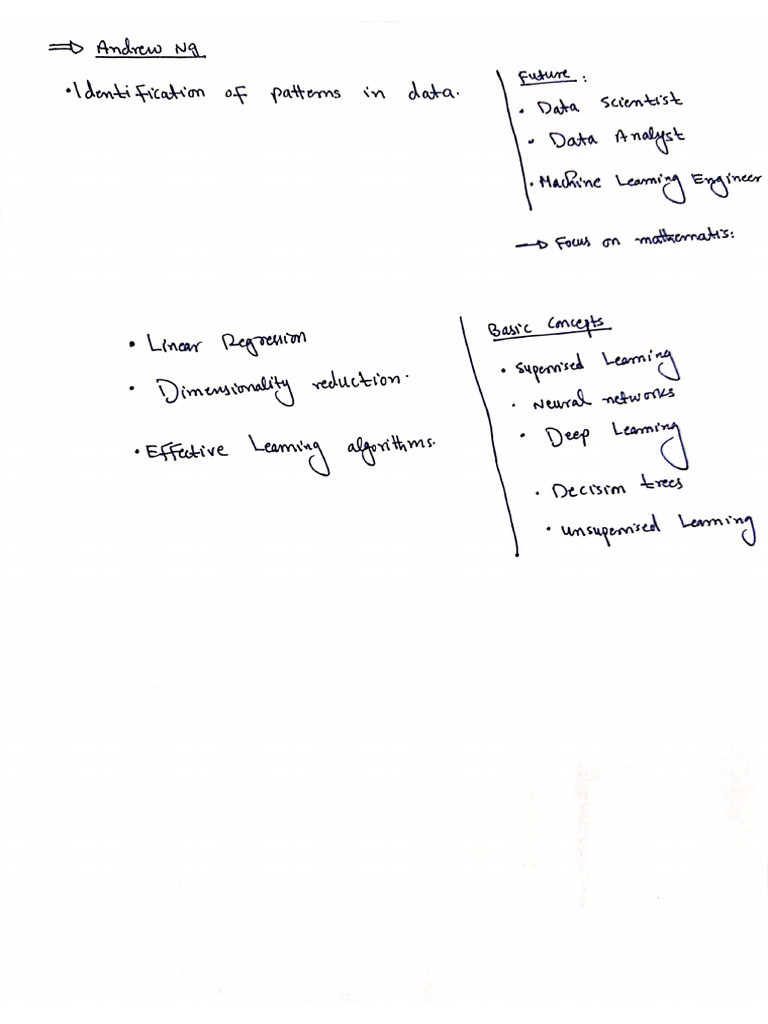 ⇒ Andrew Ng
• Identification of patterns in data.
Future :
• Data Scientist
• Data Analyst
• Machine Learning Engineer
→ Focus on mathematis:
• Linear Regression
• Dimensionality reduction.
• Effective Learning algorithms.
Basic Concepts
• Supervised Learning
• Neural networks
• Deep Learning
• Decision trees
• unsupervised Learning